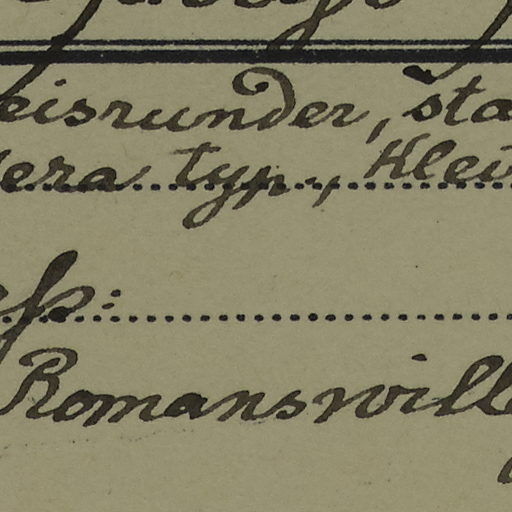 eisrunder, sta
era typ., Klei
Romanswill